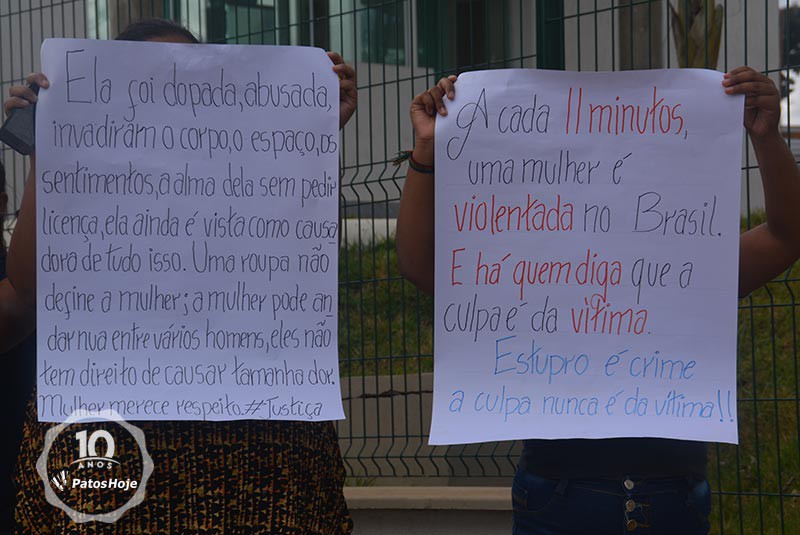 Ela foi dopada, abusada,
invadiram o corpo, o espaço, os
sentimentos, a alma dela sem pedir
licença, ela ainda é vista como causa
dora de tudo isso. Uma roupa não
define a mulher; a mulher pode an
dar nua entre vários homens, eles não
tem direito de causar tamanha dor.
Mulher merece respeito. #Justiça
A cada 11 minutos,
uma mulher é
violentada no Brasil.
E há quem diga que a
culpa é da vítima.
Estupro é crime
a culpa nunca é da vítima!!
10
ANOS
PatosHoje